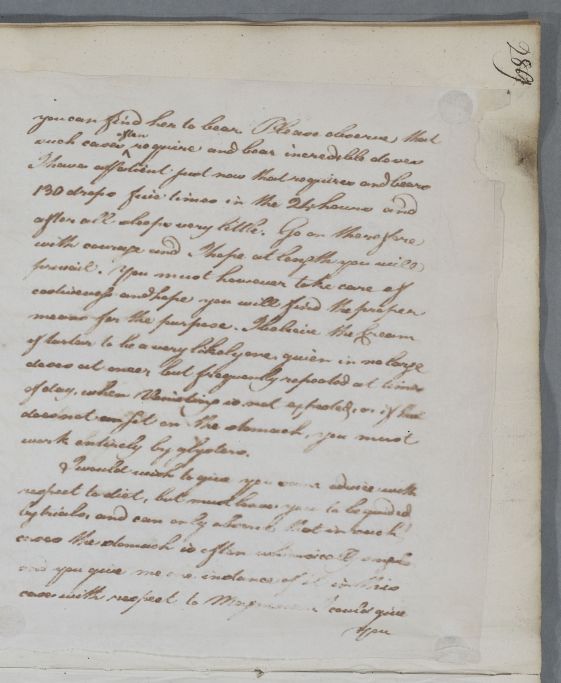 289
you can find her to bear Please observe, that
such cases often require and bear incredible doses
I have a patient just now that requires and bears
130 drops five times in the 24 hours and
after all sleeps very little. Go on therefore
with courage and I hope at length you will
prevail. You must however take care of
costiveness and hope you will find the proper
means for the purpose. I believe the Cream
of tartar to be a very likely one, given in no large
doses at once, but frequently repeated at times
of day, when Vomiting is not expected, or if
does not on the stomach, you must
work entirely by glysters.
I would wish to give you some advice with
respect to diet, but must leave you to be guided
by trials, and can only observe that in such
cases the stomach is often
and you give me one instance of it in this
case with respect to I could give
you